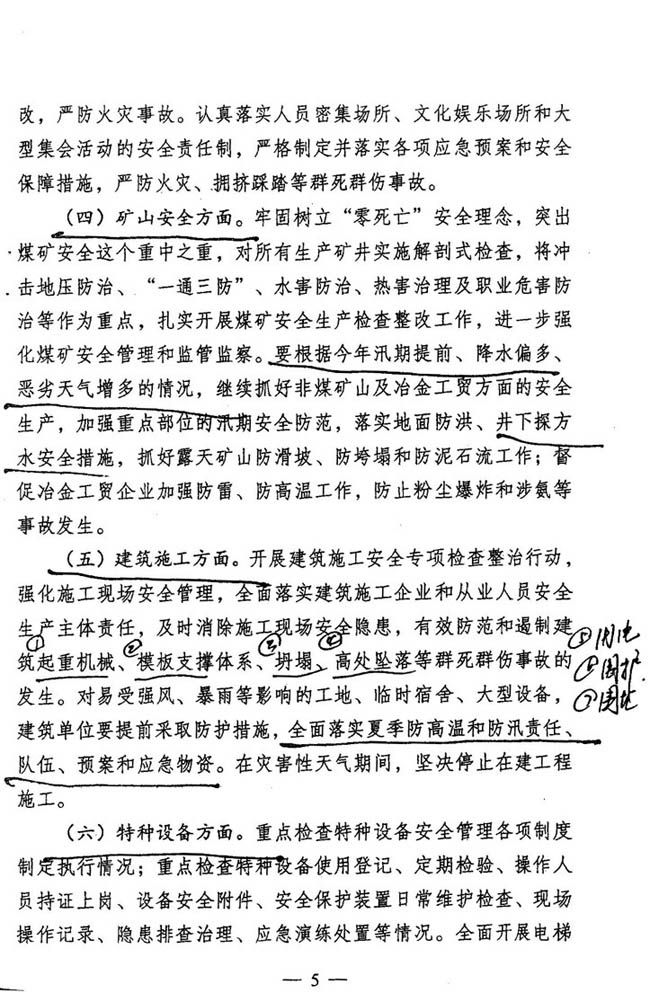 改，严防火灾事故。认真落实人员密集场所、文化娱乐场所和大
型集会活动的安全责任制，严格制定并落实各项应急预案和安全
保障措施，严防火灾、拥挤踩踏等群死群伤事故。
（四）矿山安全方面。牢固树立“零死亡”安全理念，突出
煤矿安全这个重中之重，对所有生产矿井实施解剖式检查，将冲
击地压防治、“一通三防”、水害防治、热害治理及职业危害防
治等作为重点，扎实开展煤矿安全生产检查整改工作，进一步强
化煤矿安全管理和监管监察。要根据今年汛期提前、降水偏多、
恶劣天气增多的情况，继续抓好非煤矿山及冶金工贸方面的安全
生产，加强重点部位的汛期安全防范，落实地面防洪、井下探方
水安全措施，抓好露天矿山防滑坡、防垮塌和防泥石流工作；督
促冶金工贸企业加强防雷、防高温工作，防止粉尘爆炸和涉氨等
事故发生。
（五）建筑施工方面。开展建筑施工安全专项检查整治行动，
强化施工现场安全管理，全面落实建筑施工企业和从业人员安全
生产主体责任，及时消除施工现场安全隐患，有效防范和遏制建
① ② ③ ④
筑起重机械、模板支撑体系、坍塌、高处坠落等群死群伤事故的
⑤用电
⑥围护
⑦
发生。对易受强风、暴雨等影响的工地、临时宿舍、大型设备，
建筑单位要提前采取防护措施，全面落实夏季防高温和防汛责任、
队伍、预案和应急物资。在灾害性天气期间，坚决停止在建工程
施工。
（六）特种设备方面。重点检查特种设备安全管理各项制度
制定执行情况；重点检查特种设备使用登记、定期检验、操作人
员持证上岗、设备安全附件、安全保护装置日常维护检查、现场
操作记录、隐患排查治理、应急演练处置等情况。全面开展电梯
— 5 —